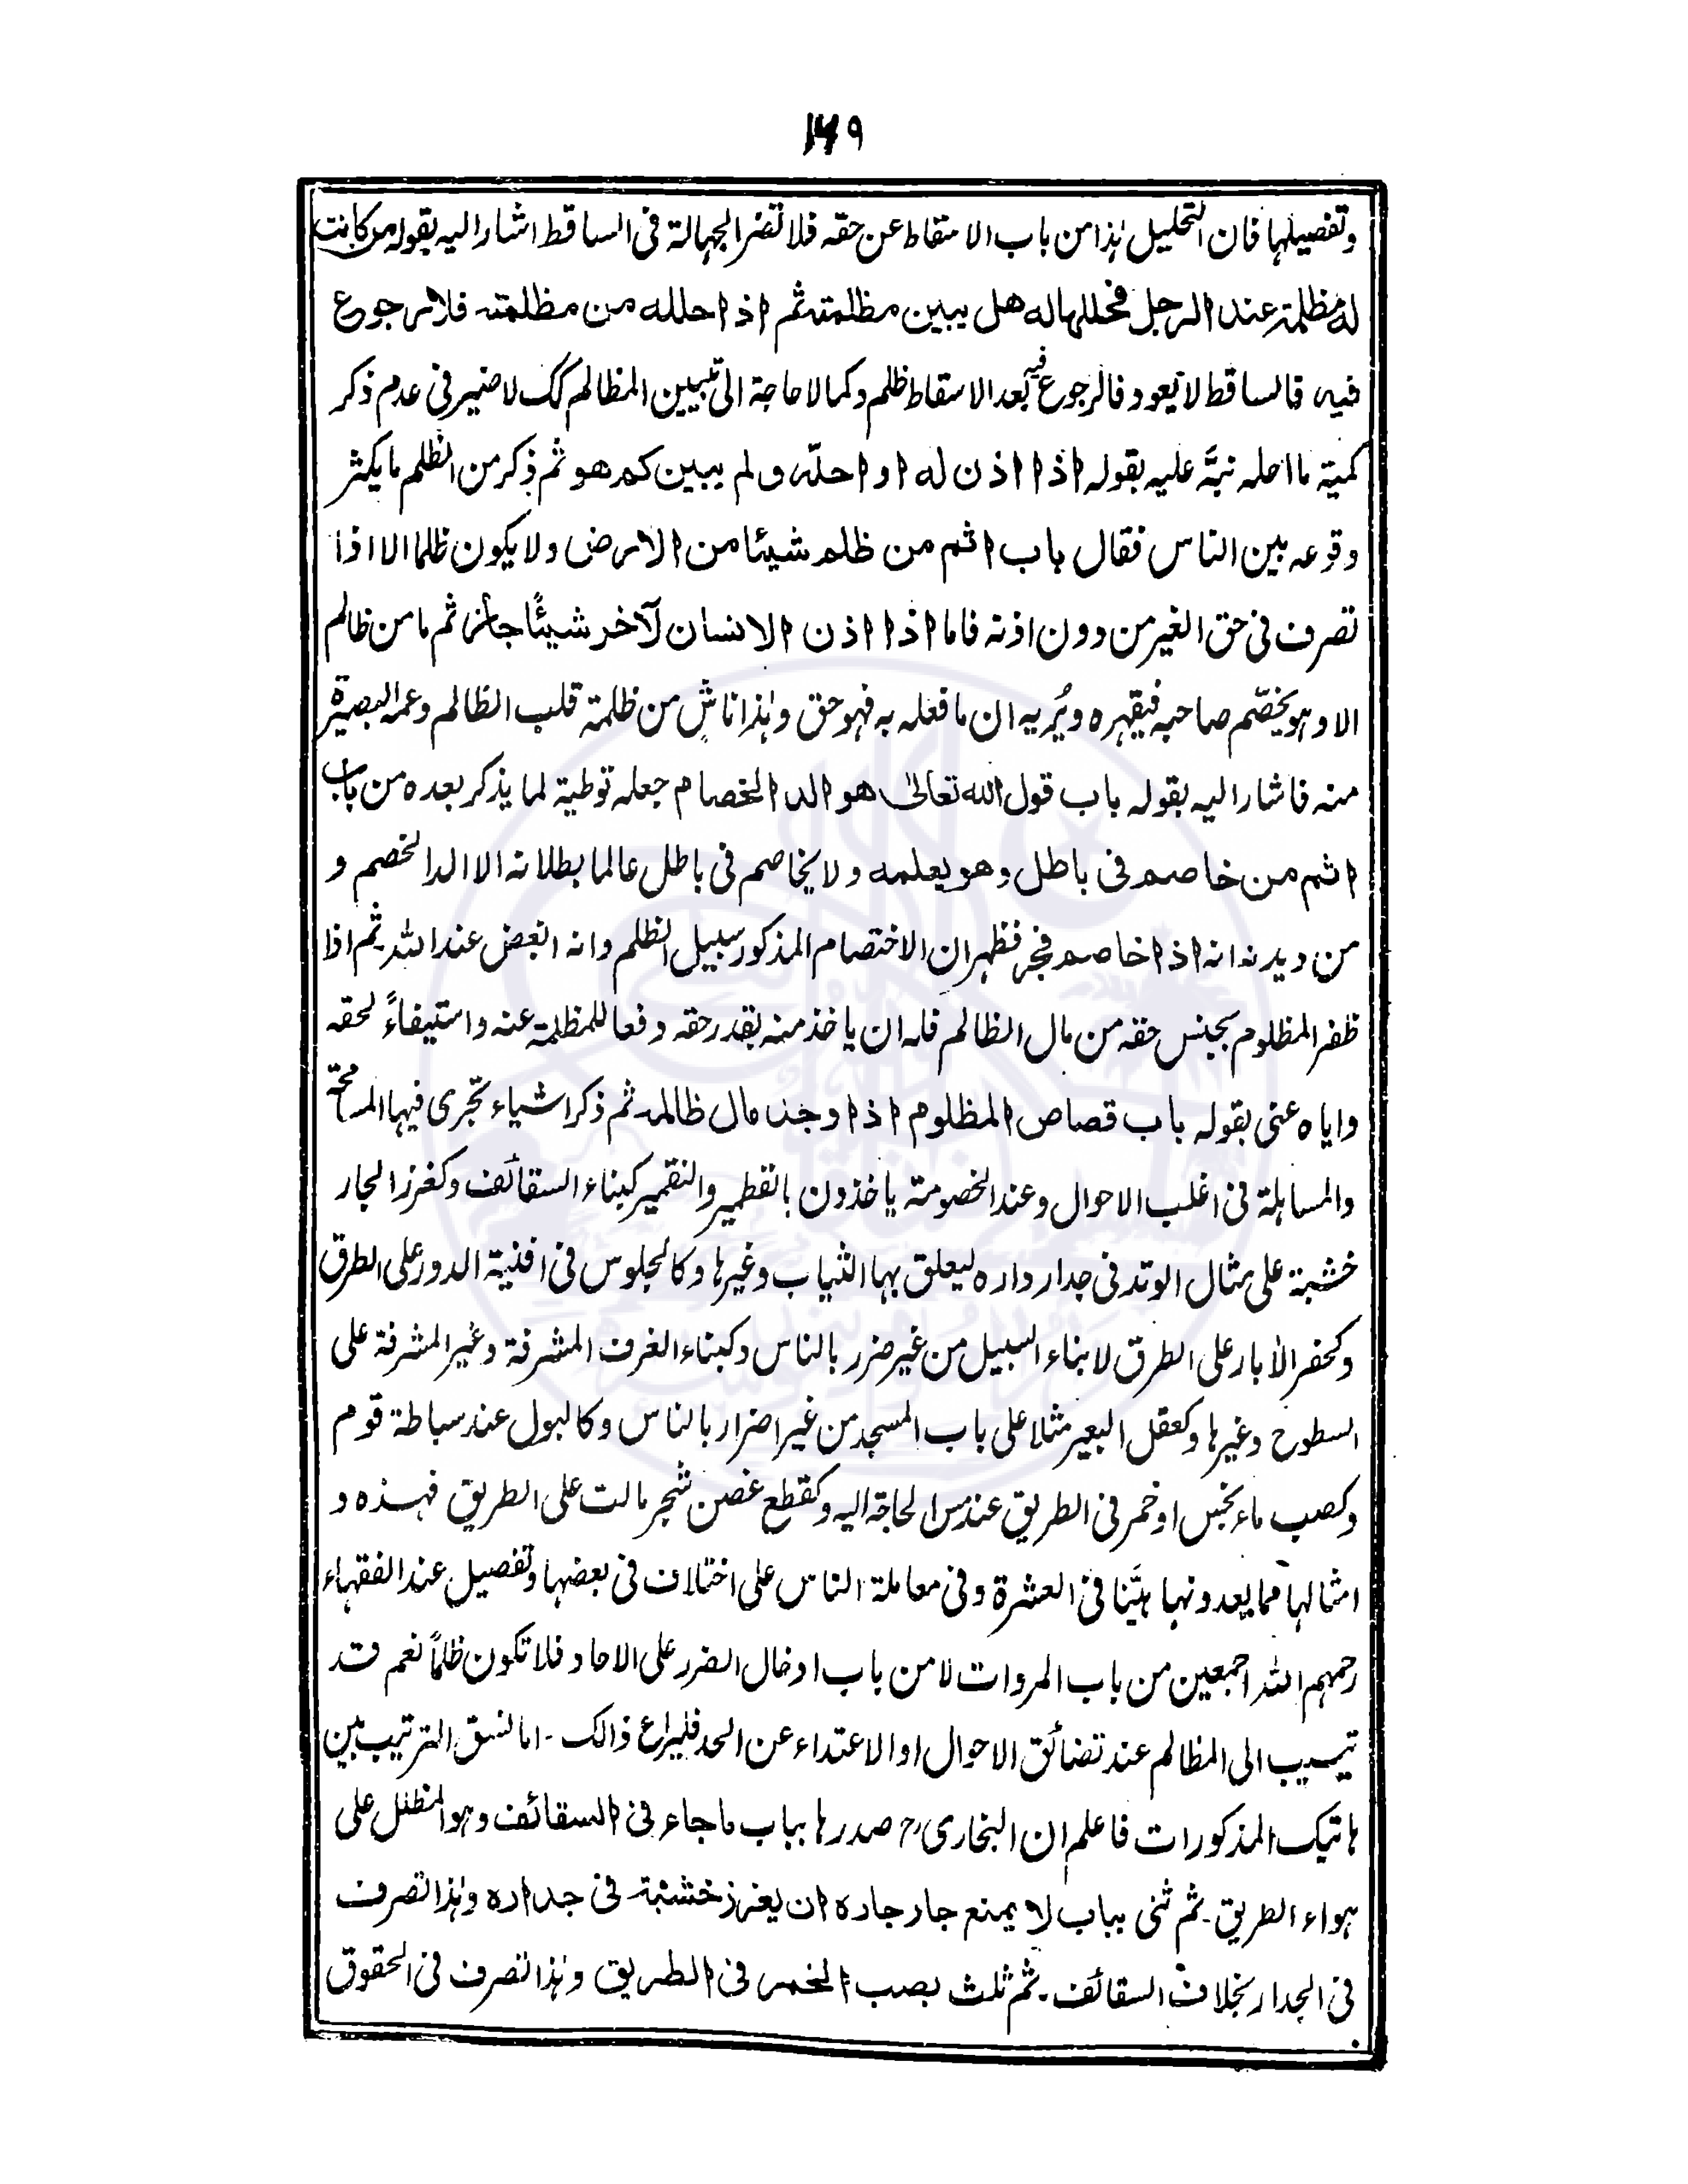 ١٦٩
وتفصيلها فان التحليل هذا من باب الاسقاط عن حقه فلا تضر الجهالة فى الساقط اشار اليه بقوله من كانت
له مظلمة عند الرجل فحللها له هل يبين مظلمته ثم اذا حلله من مظلمته فلا رجوع
فيه فالساقط لا يعود فالرجوع فيه بعد الاسقاط ظلم وكما لا حاجة الى تبيين المظالم كك لا ضير فى عدم ذكر
كمية ما احله نبَّه عليه بقوله اذا اذن له او احلّه ولم يبين كم هو ثم ذكر من الظلم ما يكثر
وقوعه بين الناس فقال باب اثم من ظلم شيئا من الارض ولا يكون ظلما الا اذا
تصرف فى حق الغير من دون اذنه فاما اذا اذن الانسان لآخر شيئًا جاز ثم ما من ظالم
الا وهو يخصّم صاحبه فيقهره ويُريه ان ما فعله به فهو حق وهذا ناشٍ من ظلمة قلب الظالم وعمه البصيرة
منه فاشار اليه بقوله باب قول الله تعالىٰ هو الد الخصام جعله توطية لما يذكر بعده من باب
اثم من خاصم فى باطل وهو يعلمه ولا يخاصم فى باطل عالما ببطلانه الا الد الخصم و
من ديدنه انه اذا خاصم فجر فظهر ان الاختصام المذكور سبيل الظلم وانه ابغض عند الله ثم اذا
ظفر المظلوم بجنس حقه من مال الظالم فله ان ياخذ منه بقدر حقه دفعا للمظلمة عنه واستيفاءً لحقه
واياه عنى بقوله باب قصاص المظلوم اذا وجد مال ظالمه ثم ذكر اشياء تجرى فيها المسامحة
والمساهلة فى اغلب الاحوال وعند الخصومة ياخذون بالقطمير والنقير كبناء السقائف وكغرز الجار
خشبة على مثال الوتد فى جدار داره ليعلق بها الثياب وغيرها وكالجلوس فى افنية الدور على الطرق
وكحفر الأبار على الطرق لابناء السبيل من غير ضرر بالناس وكبناء الغرف المشرفة وغير المشرفة على
السطوح وغيرها وكعقل البعير مثلا على باب المسجد من غير اضرار بالناس وكالبول عند سباطة قوم
وكصب ماء نجس او خمر فى الطريق عند مس الحاجة اليه وكقطع غصن شجر مالت على الطريق فهذه و
امثالها مما يعدونها هيّنا فى العشرة وفى معاملة الناس على اختلاف فى بعضها وتفصيل عند الفقهاء
رحمهم الله اجمعين من باب المروات لا من باب ادخال الضرر على الاحاد فلا تكون ظلماً نعم قد
الى المظالم عند تضائق الاحوال او الاعتداء عن الحد فليراع ذالك - اما لنسق الترتيب بين
هاتيك المذكورات فاعلم ان البخارىؒ صدرها بباب ماجاء فى السقائف وهو المظلل على
هواء الطريق - ثم ثنى بباب لا يمنع جار جاره ان يغرز خشبة فى جداره وهذا تصرف
فى الجدار بخلاف السقائف - ثم ثلث بصب الخمر فى الطريق وهذا تصرف فى الحقوق